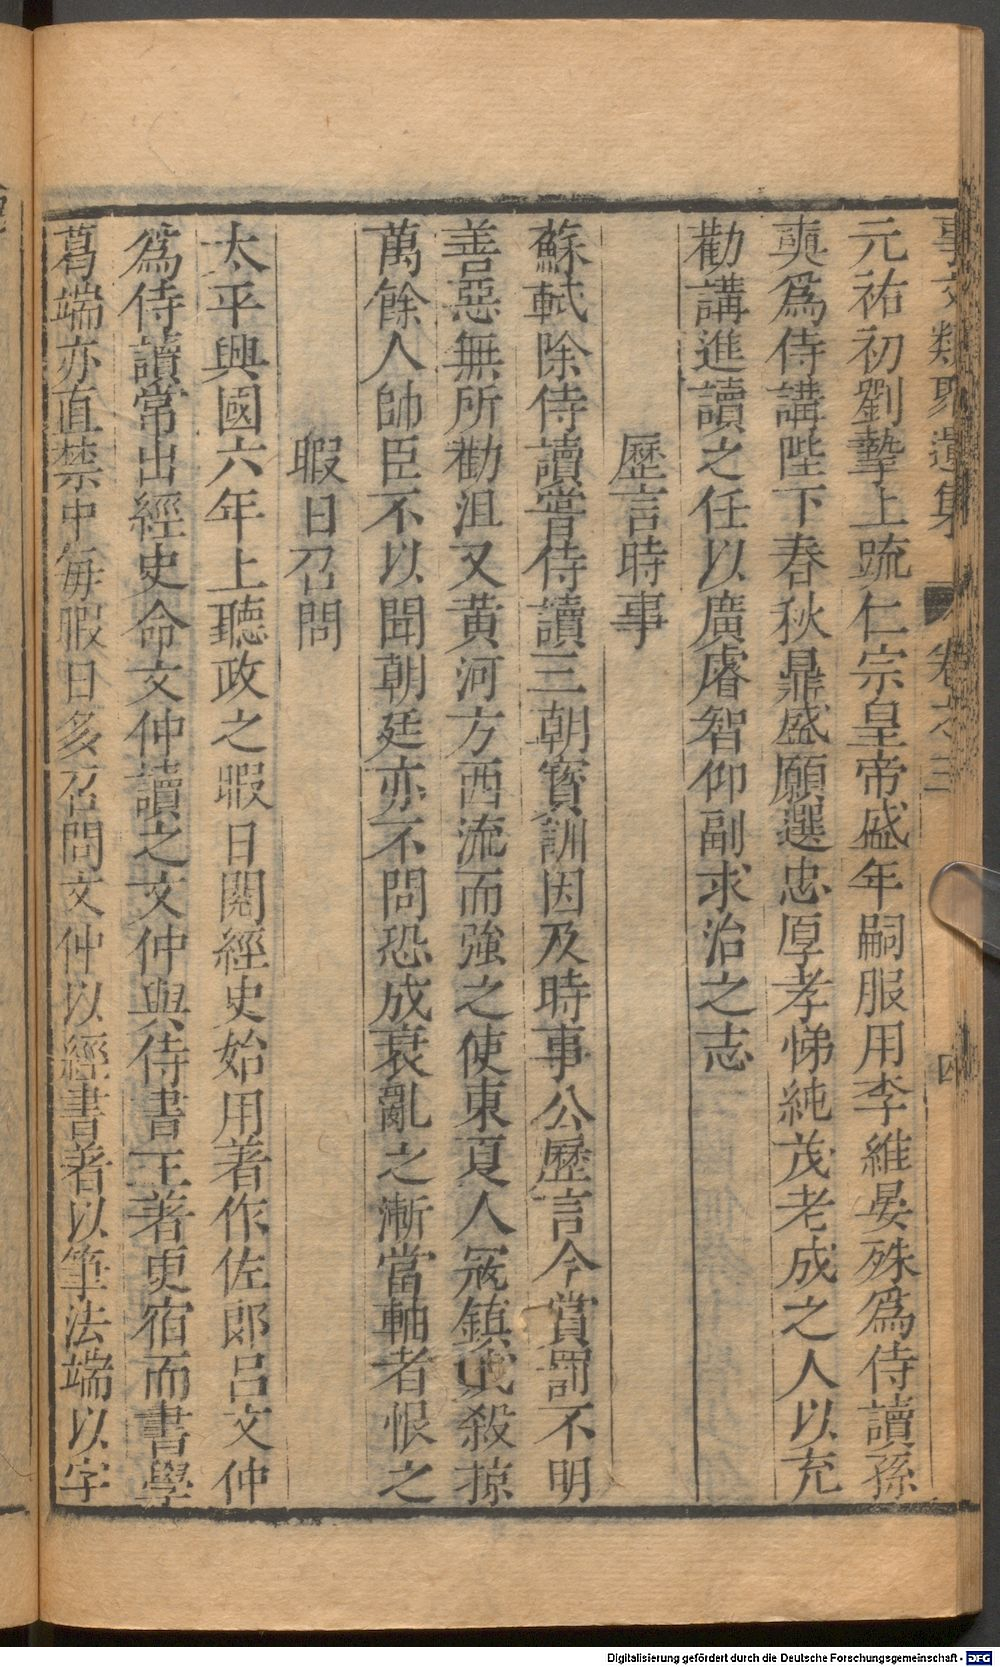 事文類聚遺集 卷之三 四
元祐初劉摯上疏仁宗皇帝盛年嗣服用李維晏殊爲侍讀孫
奭爲侍講陛下春秋鼎盛願選忠厚孝悌純茂老成之人以充
勸講進讀之任以廣睿智仰副求治之志
歷言時事
蘇軾除侍讀嘗侍讀三朝寶訓因及時事公歷言今賞罰不明
善惡無所勸沮又黃河方西流而強之使東夏人寇鎮戎殺掠
萬餘人帥臣不以聞朝廷亦不問恐成衰亂之漸當軸者恨之
暇日召問
太平興國六年上聽政之暇日閱經史始用著作佐郎呂文仲
爲侍讀常出經史命文仲讀之文仲與侍書王著更宿而書學
葛端亦直禁中每暇日多召問文仲以經書著以筆法端以字
Digitalisierung gefördert durch die Deutsche Forschungsgemeinschaft - DFG